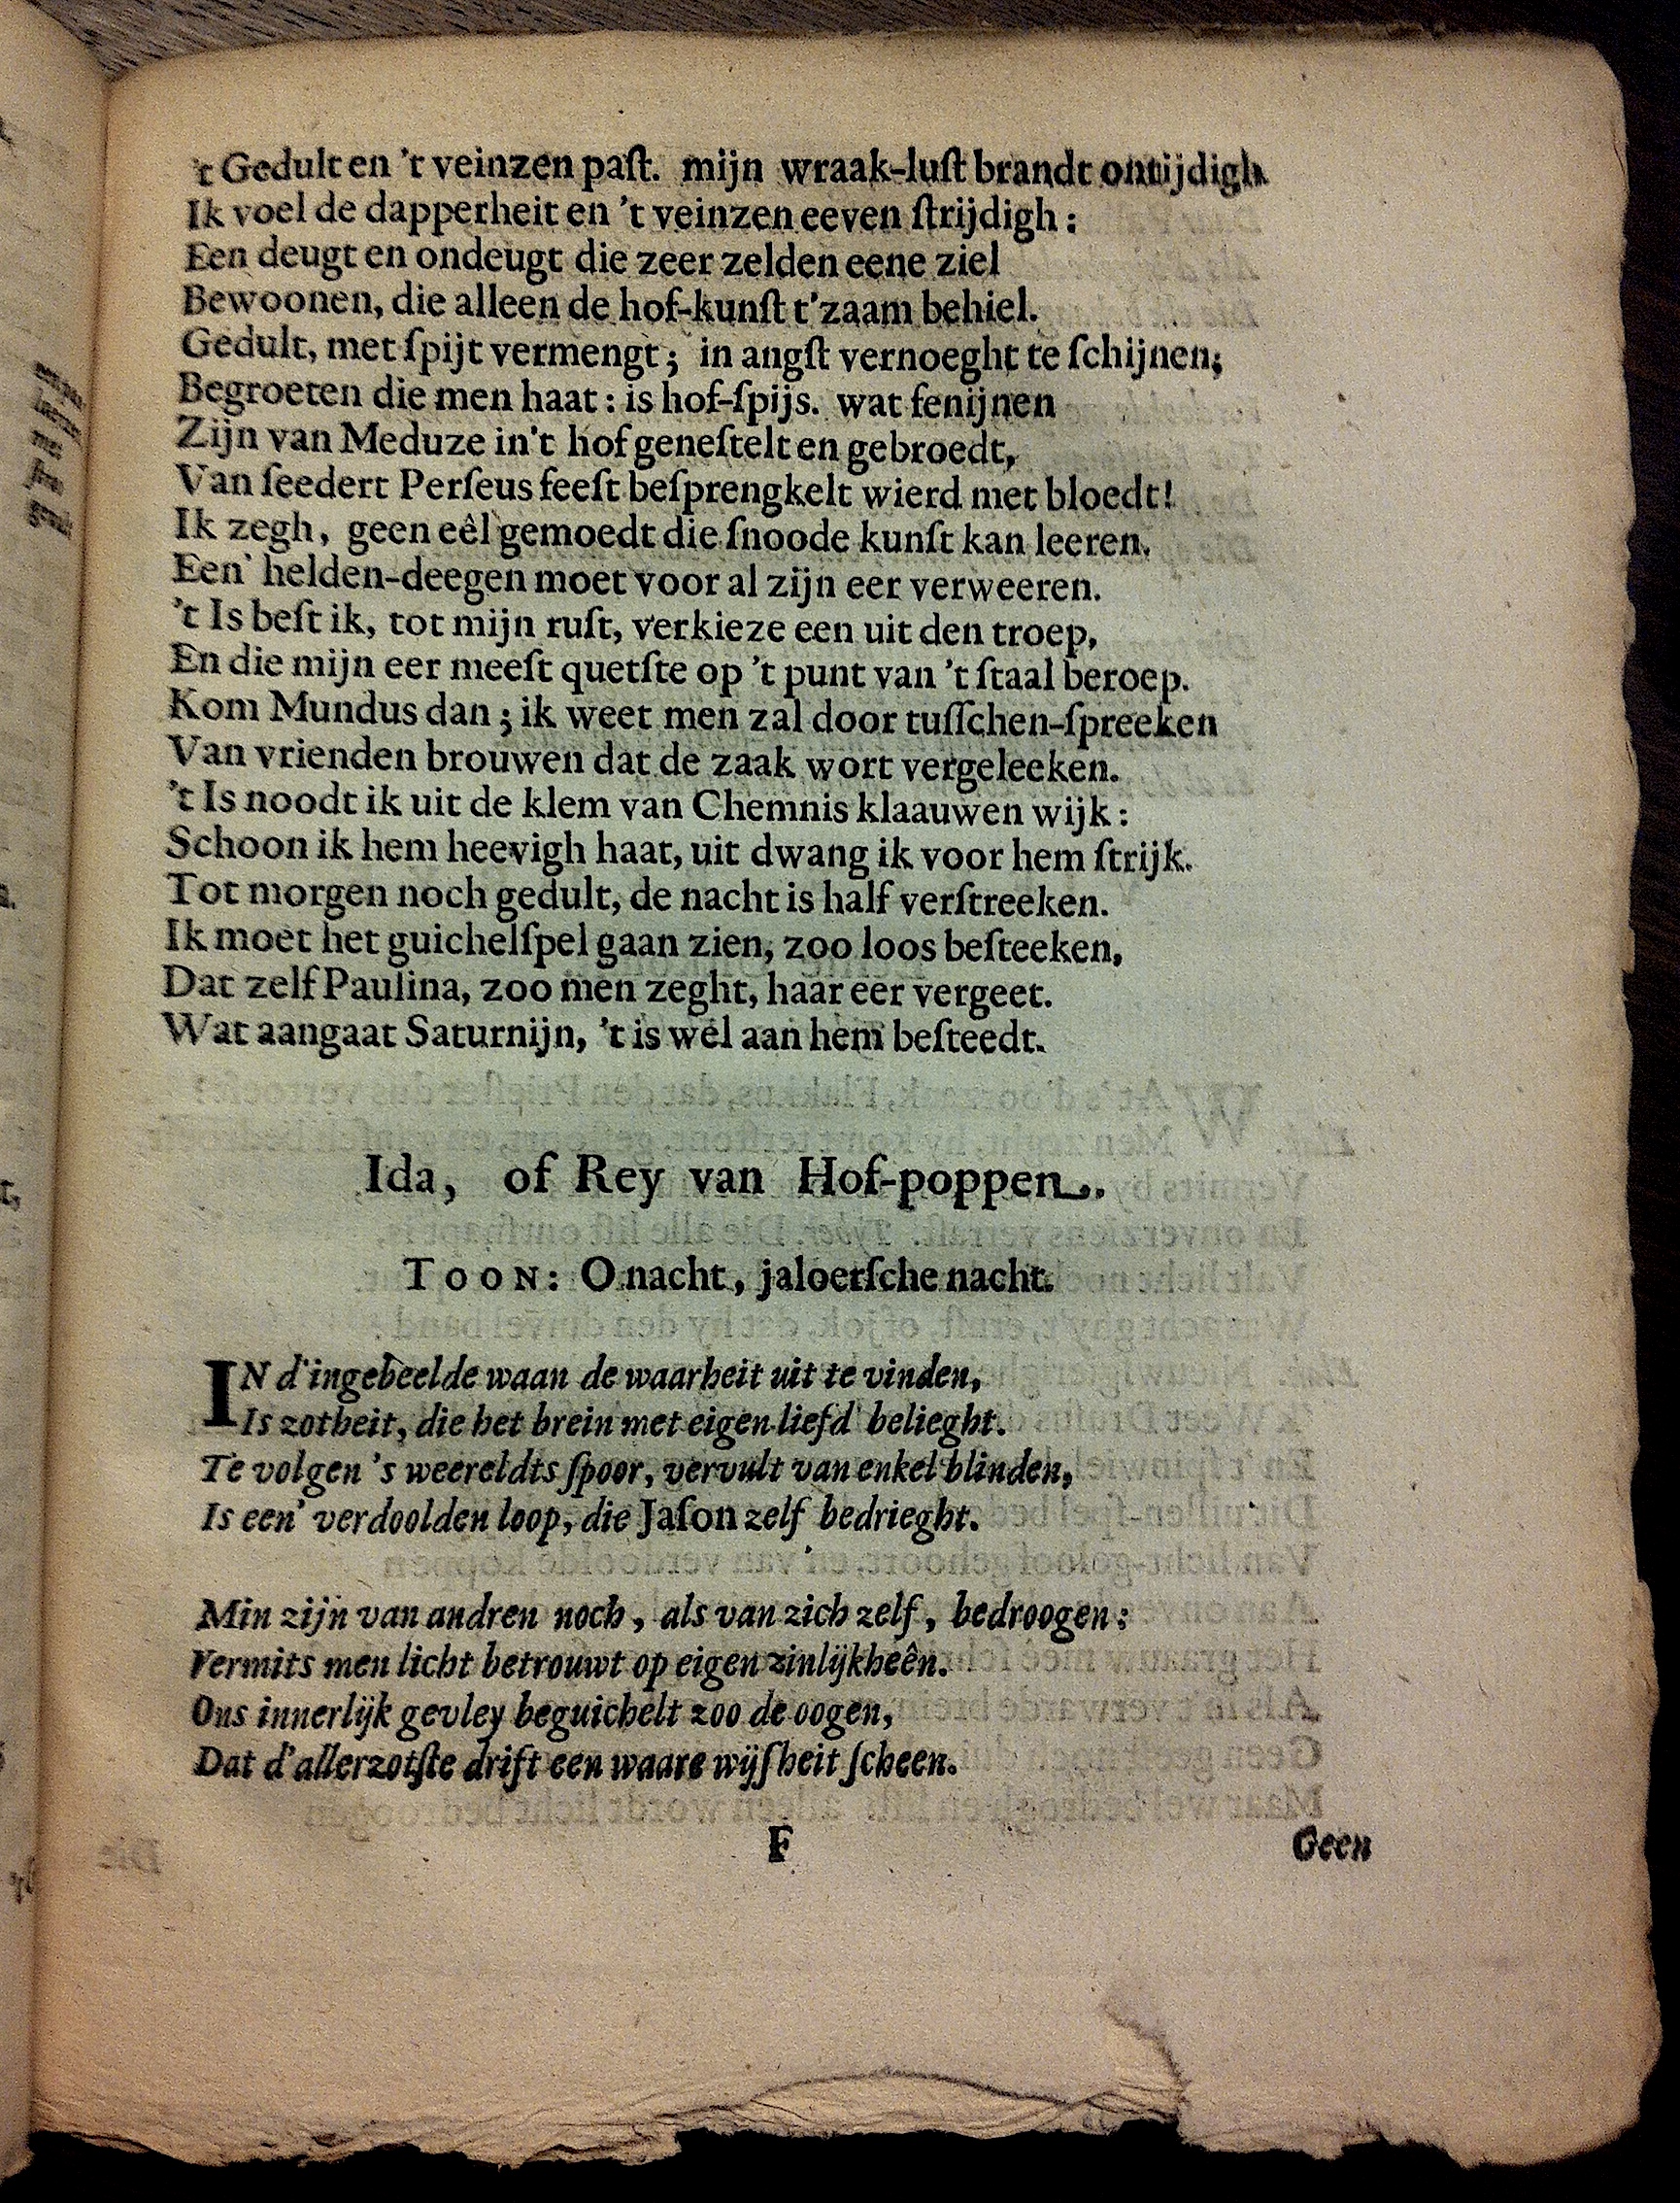 't Gedult en 't veinzen paſt. mijn wraak-luſt brandt ontijdigh
Ik voel de dapperheit en 't veinzen eeven ſtrijdigh:
Een deugt en ondeugt die zeer zelden eene ziel
Bewoonen, die alleen de hof-kunſt t'zaam behiel.
Gedult, met ſpijt vermengt; in angſt vernoeght te ſchijnen;
Begroeten die men haat: is hof-ſpijs. wat fenijnen
Zijn van Meduze in't hof geneſtelt en gebroedt,
Van ſeedert Perſeus feeſt beſprengkelt wierd met bloedt!
Ik zegh, geen eêl gemoedt die ſnoode kunſt kan leeren.
Een' helden-deegen moet voor al zijn eer verweeren.
't Is beſt ik, tot mijn ruſt, verkieze een uit den troep,
En die mijn eer meeſt quetſte op 't punt van 't ſtaal beroep.
Kom Mundus dan; ik weet men zal door tuſſchen-ſpreeken
Van vrienden brouwen dat de zaak wort vergeleeken.
't Is noodt ik uit de klem van Chemnis klaauwen wijk:
Schoon ik hem heevigh haat, uit dwang ik voor hem ſtrijk.
Tot morgen noch gedult, de nacht is half verſtreeken.
Ik moet het guichelſpel gaan zien, zoo loos beſteeken,
Dat zelf Paulina, zoo men zeght, haar eer vergeet.
Wat aangaat Saturnijn, 't is wel aan hem beſteedt.
Ida, of Rey van Hof-poppen.
TOON: O nacht, jaloerſche nacht.
IN d'ingebeelde waan de waarheit uit te vinden,
Is zotheit, die het brein met eigen liefd' belieght.
Te volgen 's weereldts ſpoor, vervult van enkel blinden,
Is een' verdoolden loop, die Jaſon zelf bedrieght.
Min zijn van andren noch, als van zich zelf, bedroogen:
Vermits men licht betrouwt op eigen zinlijkheên.
Ons innerlijk gevley beguichelt zoo de oogen,
Dat d'allerzotſte drift een waare wijſheit ſcheen.
F
Geen